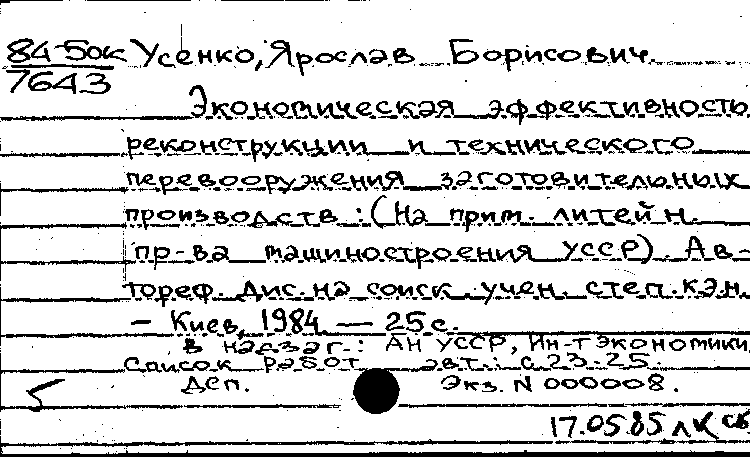 84-5ок Усенко, Ярослав Борисович.
7643
Экономическая эффективность
реконструкции и технического
перевооружения заготовительных
производств : (На прим. литейн.
пр-ва машиностроения УССР). Ав-
тореф. дис. на соиск. учен. степ. кэн.
– Киев, 1984. — 25 с.
В надзаг.: АН УССР, Ин-т экономики
Список работ авт.: с. 23-25.
ДСП. Экз. N 000008.
17.05.85 ЛК